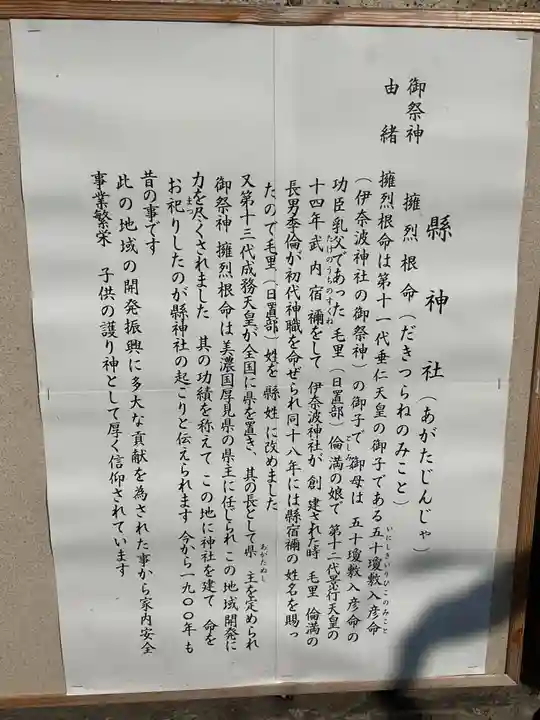 縣神社(あがたじんじゃ)
御祭神 擁烈根命(だきつらねのみこと)
由緒 擁烈根命は第十一代垂仁天皇の御子である五十瓊敷入彦命
(伊奈波神社の御祭神)の御子で 御母は 五十瓊敷入彦命の
功臣乳父であった毛里(日置部)倫満の娘で 第十二代景行天皇の
十四年武内宿禰をして 伊奈波神社が創建された時 毛里倫満の
長男季倫が初代神職を命ぜられ同十八年には縣宿禰の姓名を賜っ
たので毛里(日置部)姓を縣姓に改めました
又第十三代成務天皇が全国に県を置き、其の長として県主を定められ
御祭神 擁烈根命は美濃国厚見県の県主に任じられこの地域開発に
力を尽くされました 其の功績を称えて この地に神社を建て 命を
お祀りしたのが縣神社の起こりと伝えられます 今から一九〇〇年も
昔の事です
此の地域の開発振興に多大な貢献を為された事から家内安全
事業繁栄 子供の護り神として厚く信仰されています